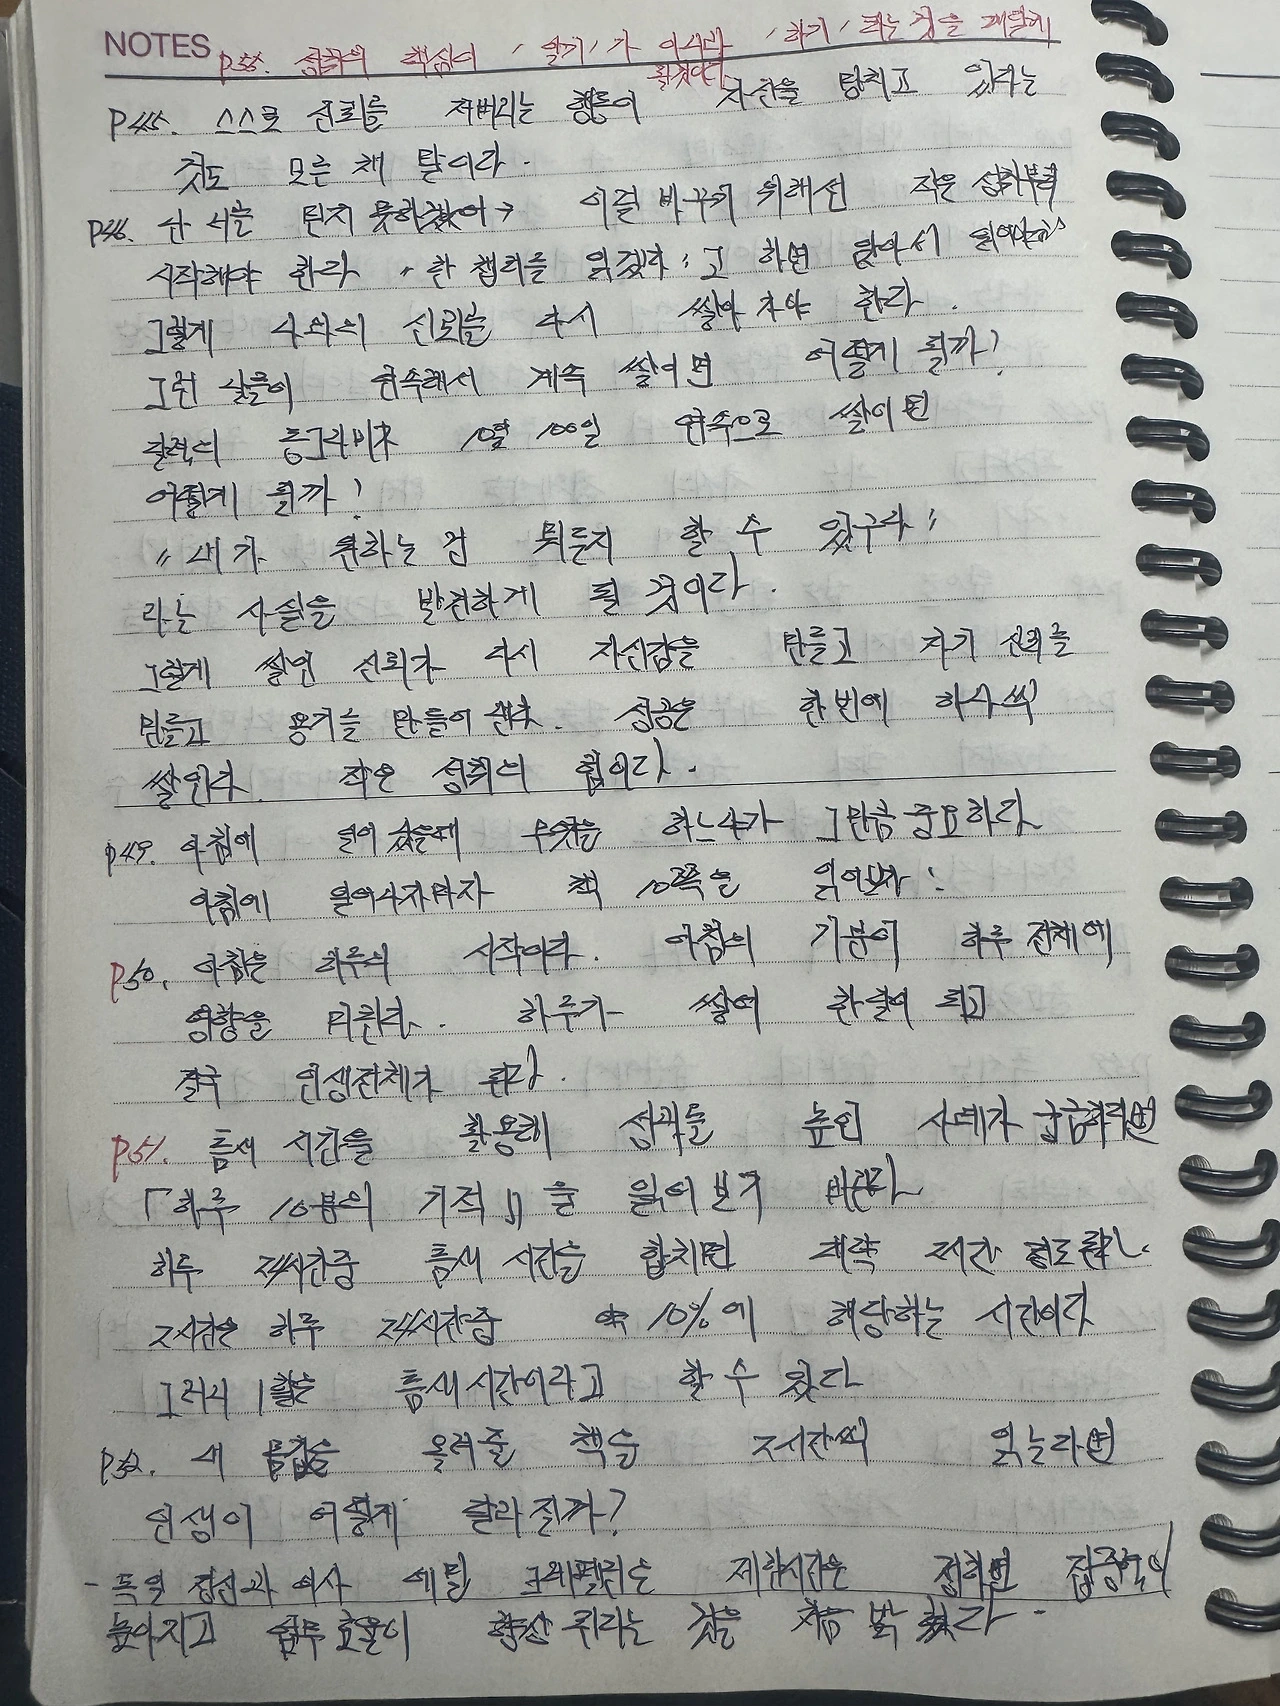 NOTES
P55. 성공의 핵심이 '알기'가 아니라 '하기'라는 것을 깨닫게
될것이다
P45. 스스로 신뢰를 저버리는 행동이 자신을 망치고 있다는
것도 모른 채 말이다.
P46. 난 나를 믿지 못하겠어 → 이걸 바꾸기 위해선 작은 성취부터
시작해야 한다 "한 챕터를 읽겠다" 고 하면 앉아서 읽어야한다
그렇게 나와의 신뢰를 다시 쌓아 가야 한다.
그런 날들이 연속해서 계속 쌓이면 어떻게 될까?
달력의 동그라미가 10일 100일 연속으로 쌓이면
어떻게 될까?
"내가 원하는 건 뭐든지 할 수 있구나"
라는 사실을 발견하게 될 것이다.
그렇게 쌓인 신뢰가 다시 자신감을 만들고 자기 신뢰를
만들고 용기를 만들어 낸다. 성공은 한번에 하나씩
쌓인다. 작은 성취의 힘이다.
P49. 아침에 일어났을때 무엇을 하느냐가 그만큼 중요하다
아침에 일어나자마자 책 10쪽을 읽어보자!
P50. 아침은 하루의 시작이다. 아침의 기분이 하루 전체에
영향을 미친다. 하루가 쌓여 한달이 되고
결국 인생전체가 된다.
P51. 틈새 시간을 활용해 성과를 높인 사례가 궁금하다면
『하루 10분의 기적』을 읽어보기 바란다
하루 24시간중 틈새 시간을 합치면 대략 2시간 정도된다.
2시간은 하루 24시간중 약 10%에 해당하는 시간이다
그러니 1할은 틈새시간이라고 할 수 있다
P52. 내 몸값을 올려줄 책을 2시간씩 읽는다면
인생이 어떻게 달라질까?
- 독일 정신과 의사 에밀 크레펠린은 제한시간을 정하면 집중력이
높아지고 업무 효율이 향상 된다는 것을 처음 밝혔다.